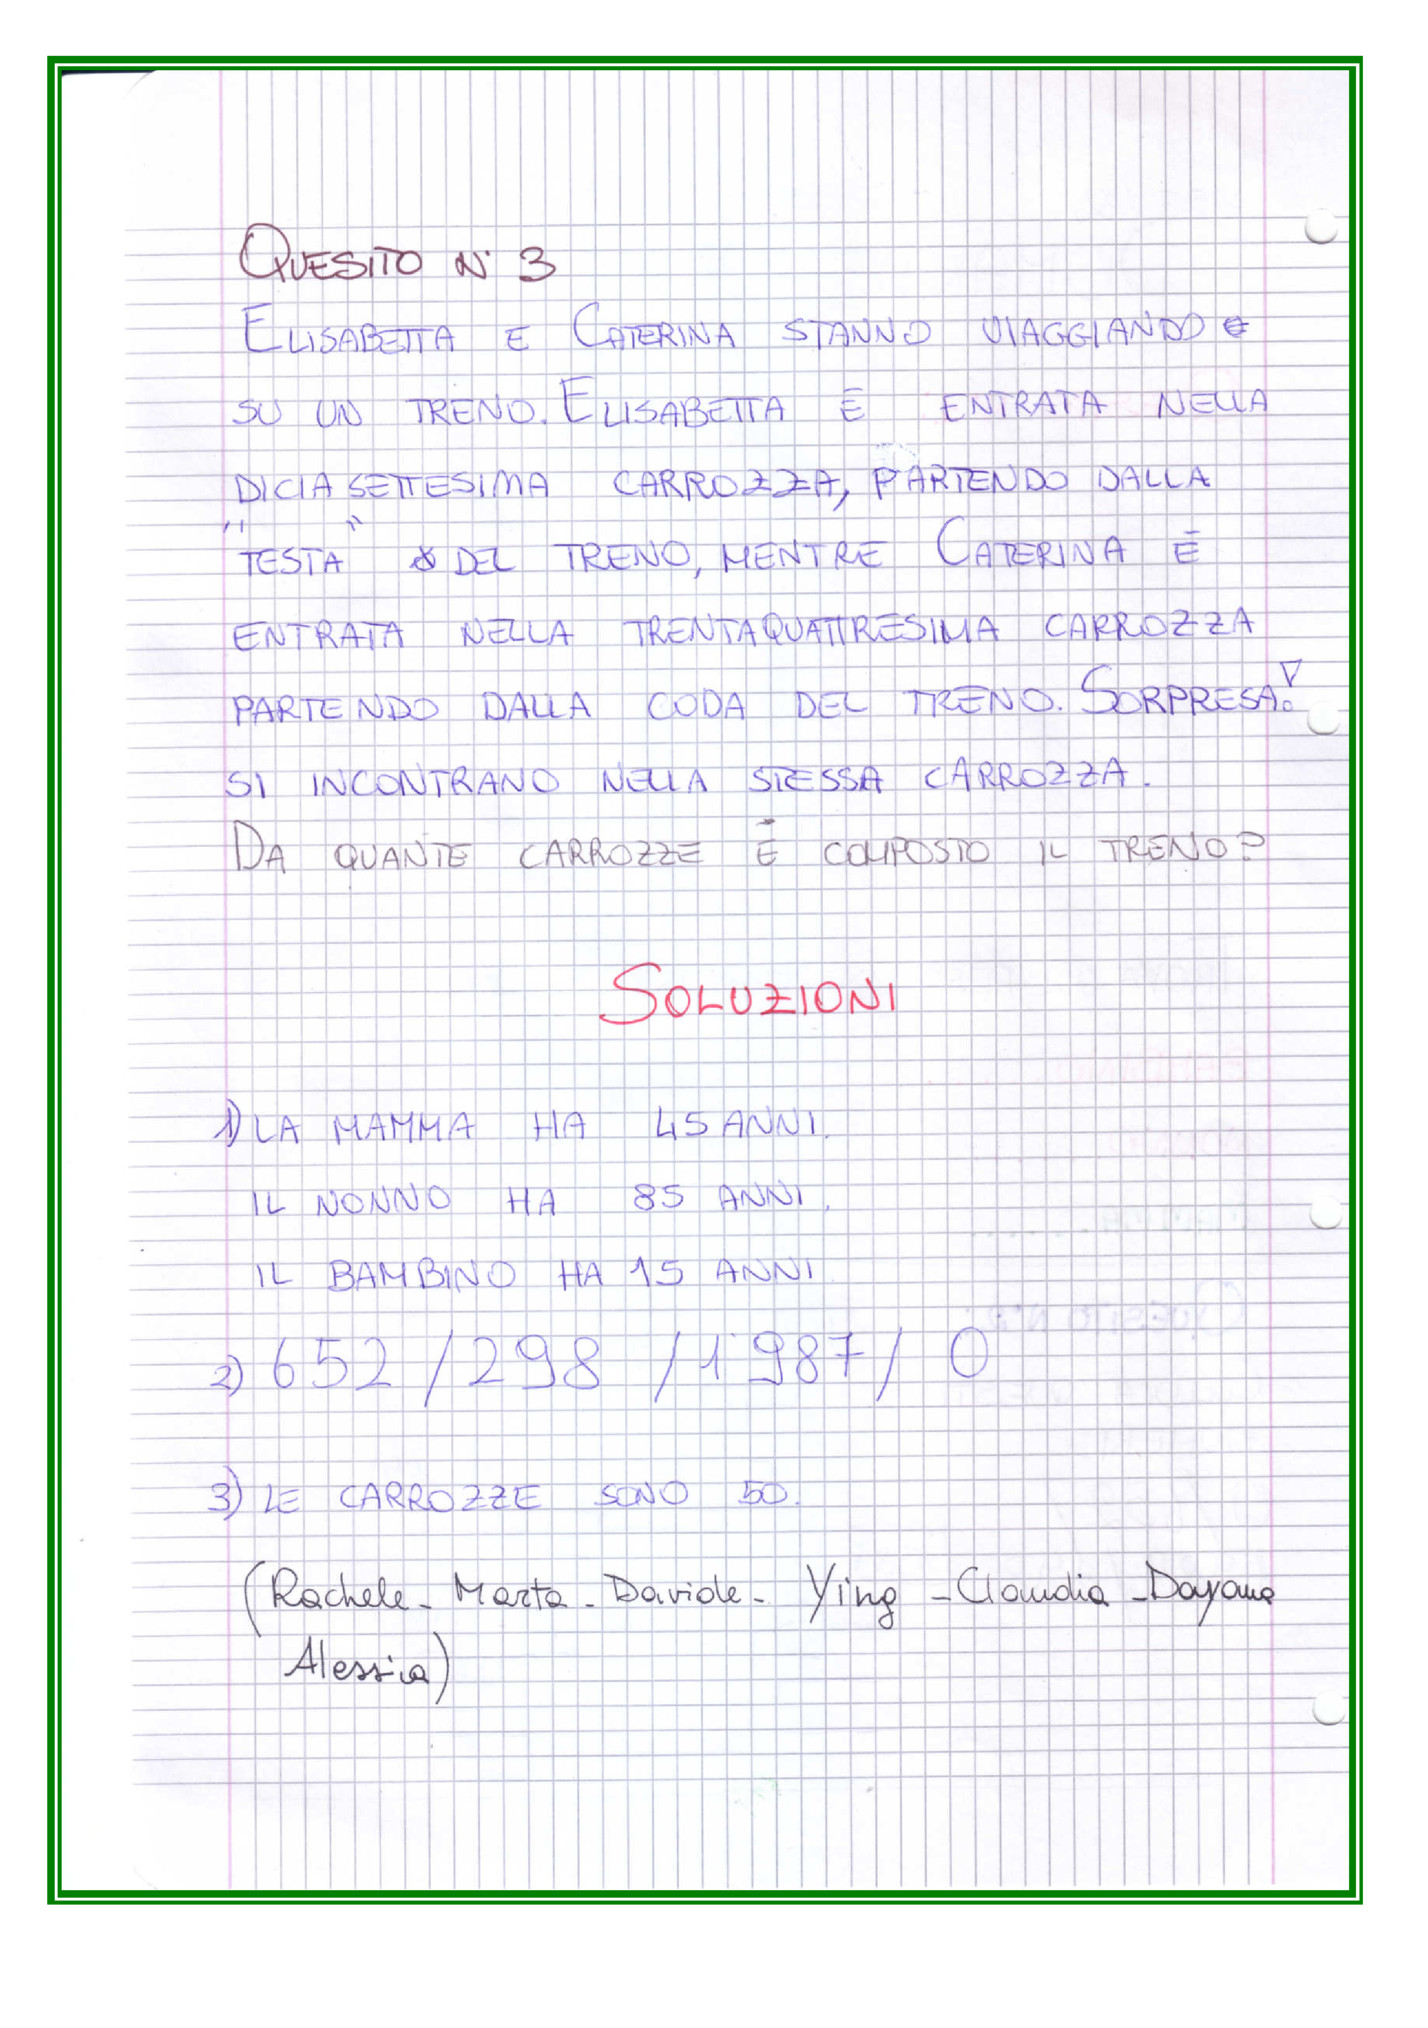 QUESITO N° 3
ELISABETTA E CATERINA STANNO VIAGGIANDO
SU UN TRENO. ELISABETTA È ENTRATA NELLA
DICIASETTESIMA CARROZZA, PARTENDO DALLA
"TESTA" DEL TRENO, MENTRE CATERINA È
ENTRATA NELLA TRENTAQUATTRESIMA CARROZZA
PARTENDO DALLA CODA DEL TRENO. SORPRESA!
SI INCONTRANO NELLA STESSA CARROZZA.
DA QUANTE CARROZZE È COMPOSTO IL TRENO?
SOLUZIONI
1) LA MAMMA HA 45 ANNI.
IL NONNO HA 85 ANNI.
IL BAMBINO HA 15 ANNI
2) 652/298/1987/0
3) LE CARROZZE SONO 50.
(Rachele - Marta - Davide - Ying - Claudia - Dayana
Alessia)